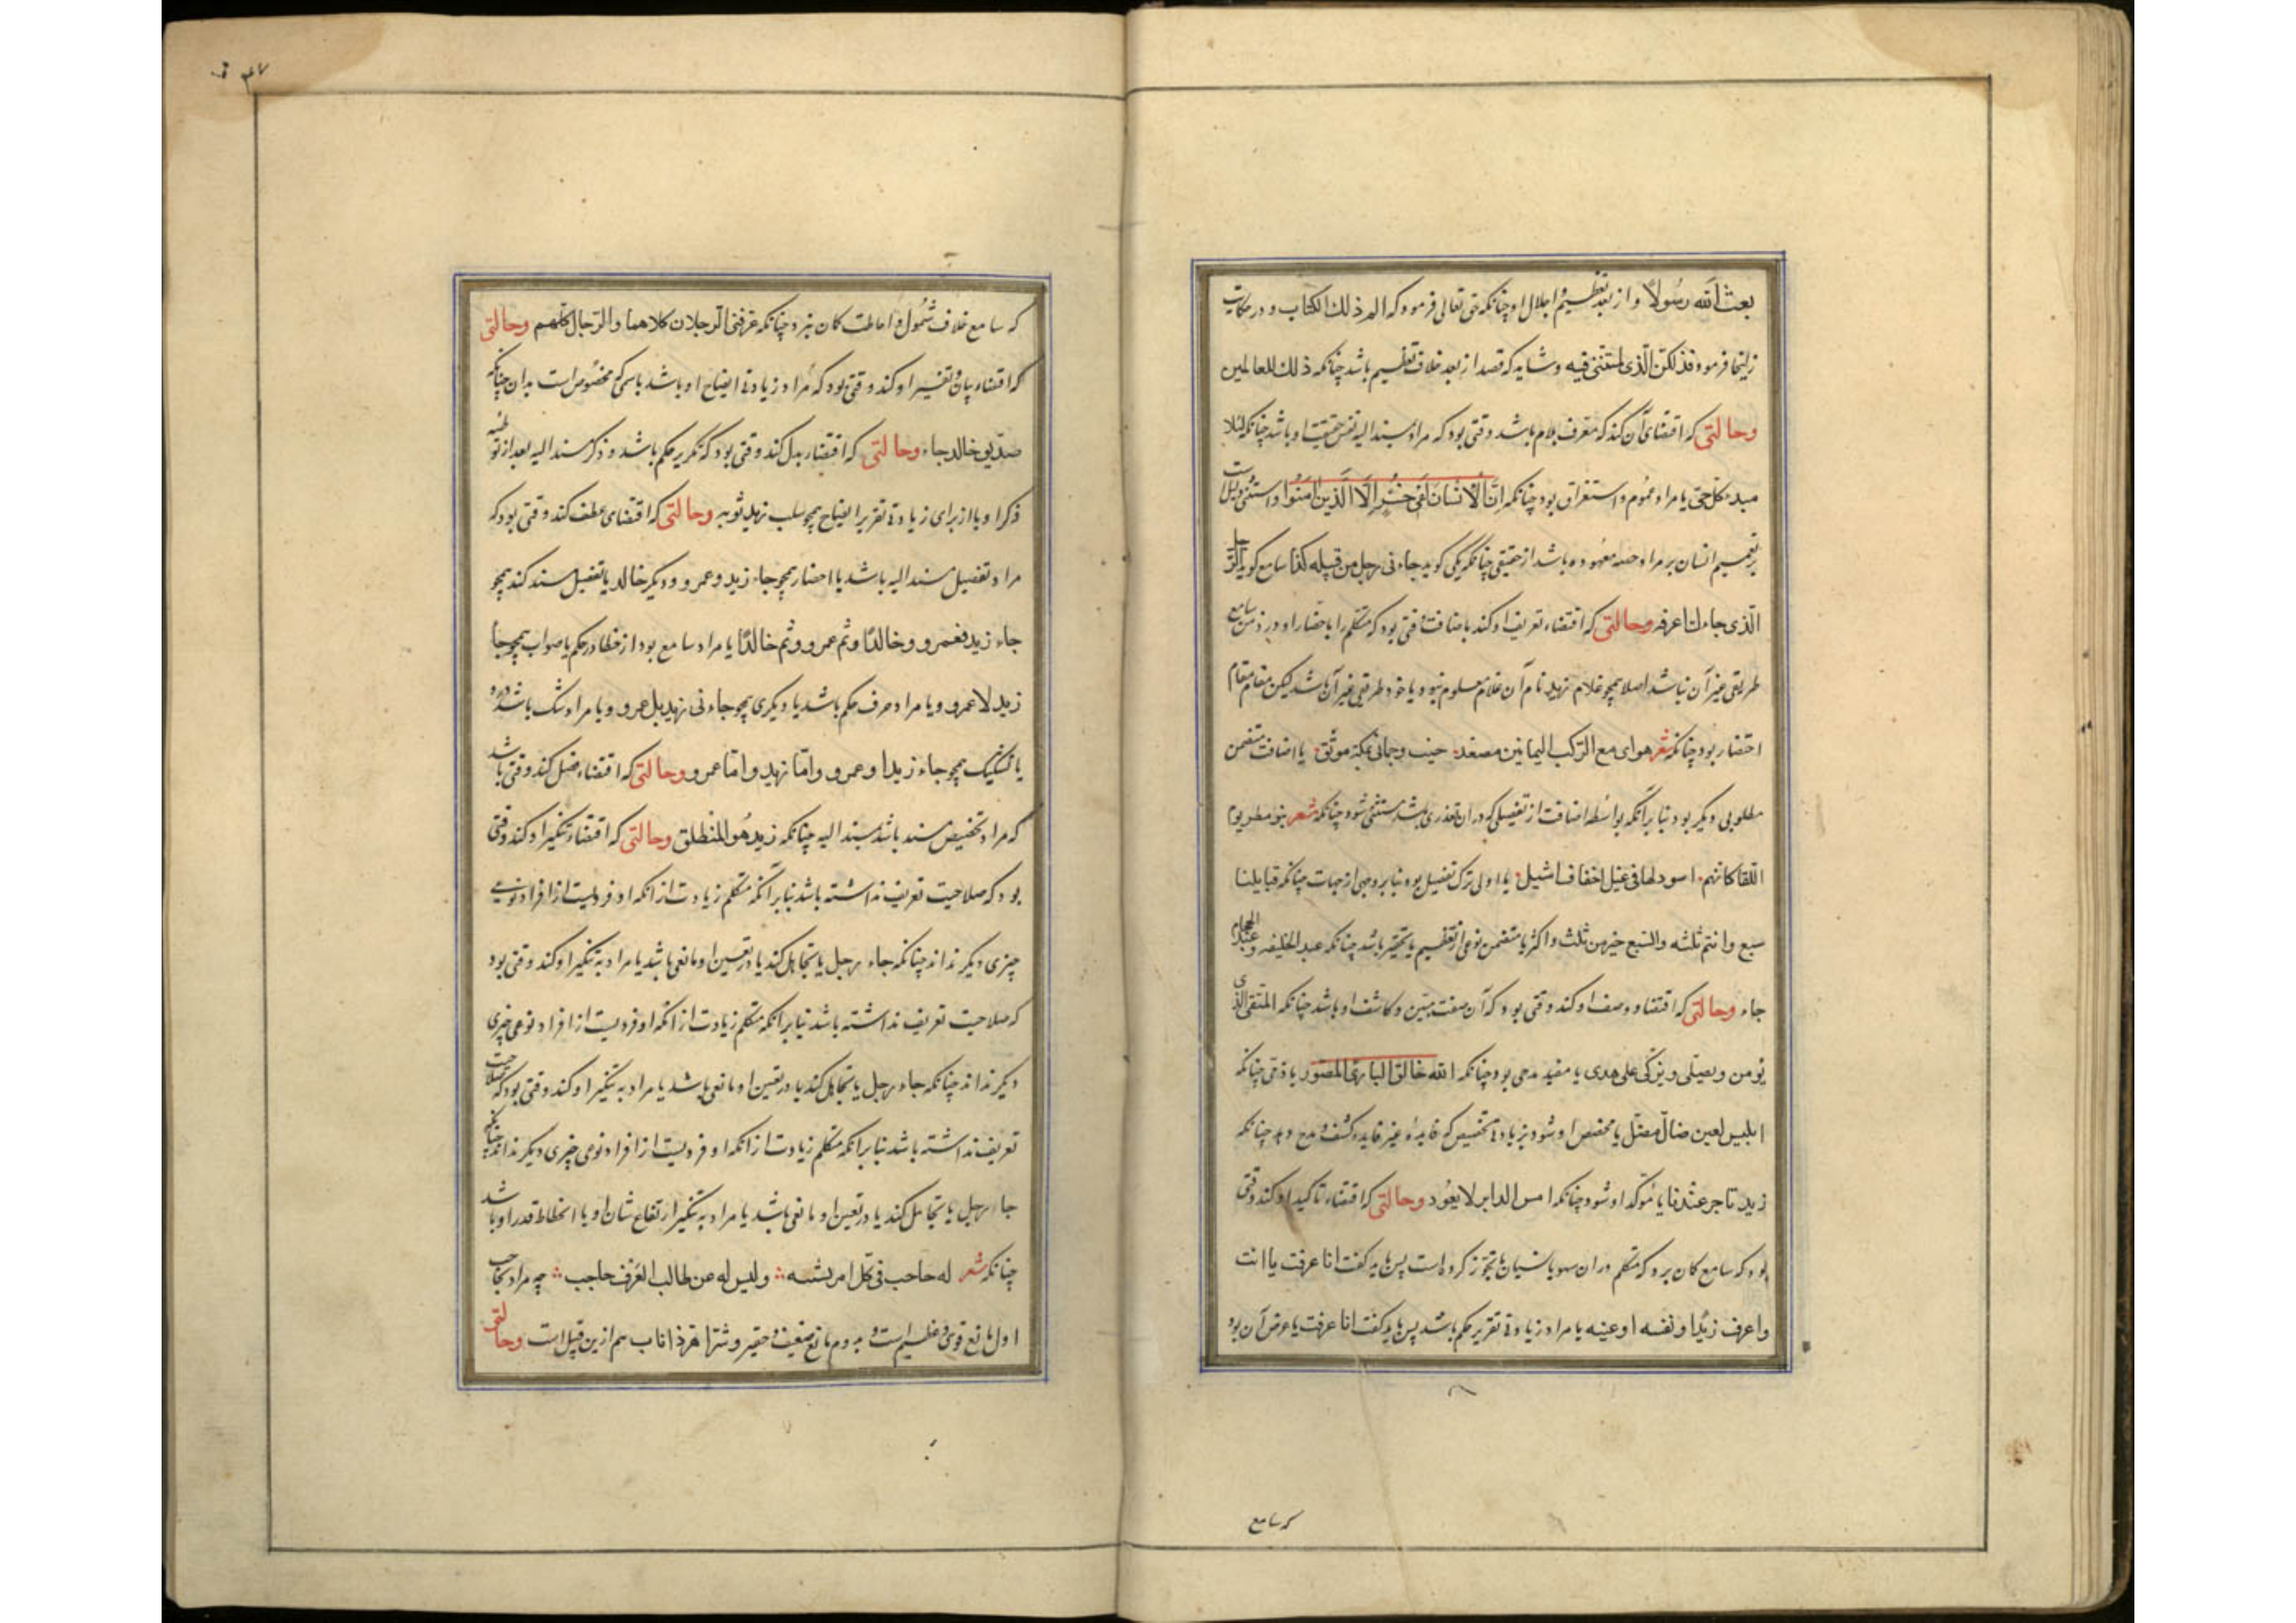 بعث الله رسولا و از بعد تعظیم و اجلال او چنانکه حق تعالی فرمود که الم ذلك الکتاب و در حکایت
زلیخا فرمود فذلکن الذی لمتننی فیه و شاید که قصد از بعد خلاف تعظیم باشد چنانکه ذلك للعالمین
وحالتی که اقتضای آن کند که معرف بلام باشد وقتی بود که مراد بمسند الیه نفس حقیقت او باشد چنانکه
حتی یا مراد عموم و استغراق بود چنانکه ان الانسان لفی خسر الا الذین امنوا و استثنی دلیل است
بر تعمیم انسان یا مراد حصه معهوده باشد از حقیقی چنانکه یکی گوید جاءنی رجل من قبیله کذا سامع گوید الرجل
الذی جاءك اعرفه وحالتی که اقتضاء تعریف او کند باضافت وقتی بود که متکلم را باحضار او در ذهن سامع
طریقی غیر آن نباشد اصلا همچو غلام زید نام آن غلام معلوم نبود و یا خود طریقی غیر آن باشد لیکن مقام مقام
اختصار بود چنانکه شعر هوای مع الرکب الیمانین مصعد جنیب وجمانی بمکة موثق یا اضافت متضمن
مطلوبی دیگر بود بنابر آنکه بواسطه اضافت از تفصیلی که در ان تعذری باشد مستغنی شود چنانکه شعر بنو مطر یوم
اللقا کانهم اسود لها فی غیل خفان اشبل یا اولی ترک تفصیل بود بنابر وجهی از جهات چنانکه قبایلنا
سبع وانتم ثلثه والسبع خیر من ثلث واکثر یا متضمن نوعی از تعظیم یا تحقیر باشد چنانکه عبد الخلیفه و عبد الحجام
جاء وحالتی که اقتضاء وصف او کند وقتی بود که آن صفت مبین و کاشف او باشد چنانکه المتقی الذی
یومن ویصلی ویزکی علی هدی یا مفید مدحی بود چنانکه الله خالق الباری المصور یا ذمی چنانکه
ابلیس لعین ضال مضل یا مخصص او شود بزیادتی تخصیص که فایده غیر فایده کشف و مدح دهد چنانکه
زید تاجر عندنا یا مؤکد او شود چنانکه امس الدابر لا یعود وحالتی که اقتضاء تاکید او کند وقتی
بود که سامع گمان برد که متکلم در ان سهو یا نسیان یا تجوز کرده است پس باید گفت انا عرفت یا انت
واعرف زیدا و نفسه او عینه یا مراد زیادتی تقریر حکم باشد پس باید گفت انا عرفت یا غرض آن بود
که سامع
۳۷
که سامع خلاف شمول و احاطت گمان نبرد چنانکه عرفنی الرجلان کلاهما والرجال کلهم وحالتی
که اقتضاء بیان و تفسیر او کند وقتی بود که مراد زیادتی ایضاح او باشد باسمی که مخصوص است بدان چنانکه
صدیق خالد جاء وحالتی که اقتضاء بدل کند وقتی بود که تکریر حکم باشد و ذکر مسند الیه بعد از توطئه
ذکر او یا از برای زیادتی تقریر و ایضاح همچو سلب زید ثوبه وحالتی که اقتضای عطف کند وقتی بود که
مراد تفصیل مسند الیه باشد یا احضار همچو جاء زید وعمرو و دیگر خالد یا تفصیل مسند کند همچو
جاء زید فعمرو و خالدا وثم عمرو وثم خالدا یا مراد سامع بود از خطا در حکم با صواب همچو جا
زید لا عمرو و یا مراد صرف حکم باشد یا دیگری همچو جاءنی زید بل عمرو و یا مراد شک باشد درو
یا تشکیک همچو جاء زید او عمرو واما زید واما عمرو وحالتی که اقتضاء فصل کند وقتی باشد
که مراد تخصیص مسند باشد بمسند الیه چنانکه زید هو المنطلق وحالتی که اقتضاء تنکیر او کند وقتی
بود که صلاحیت تعریف نداشته باشد بنابر آنکه متکلم زیادت از انکه او فردیست از افراد نوعی
چیزی دیگر نداند چنانکه جاء رجل یا تجاهل کند یا در تعیین او مانعی باشد یا مراد به تنکیر او کند وقتی بود
که صلاحیت تعریف نداشته باشد بنابر انکه متکلم زیادت از انکه او فردیست از افراد نوعی چیزی
دیگر نداند چنانکه جاء رجل یا تجاهل کند یا در تعیین او مانعی باشد یا مراد به تنکیر او کند وقتی بود که صلاحیت
تعریف نداشته باشد بنابر انکه متکلم زیادت از انکه او فردیست از افراد نوعی چیزی دیگر نداند چنانکه
جاء رجل یا تجاهل کند یا در تعین او مانعی باشد یا مراد به تنکیر ارتفاع شان او یا انحطاط قدر او باشد
چنانکه شعر له حاجب فی کل امر یشینه ولیس له عن طالب العرف حاجب چه مراد بحاجب
اول مانع قوی و عظیم است و به دوم مانع ضعیف و حقیر و شر اهر ذا ناب هم ازین قبیل است وحالتی